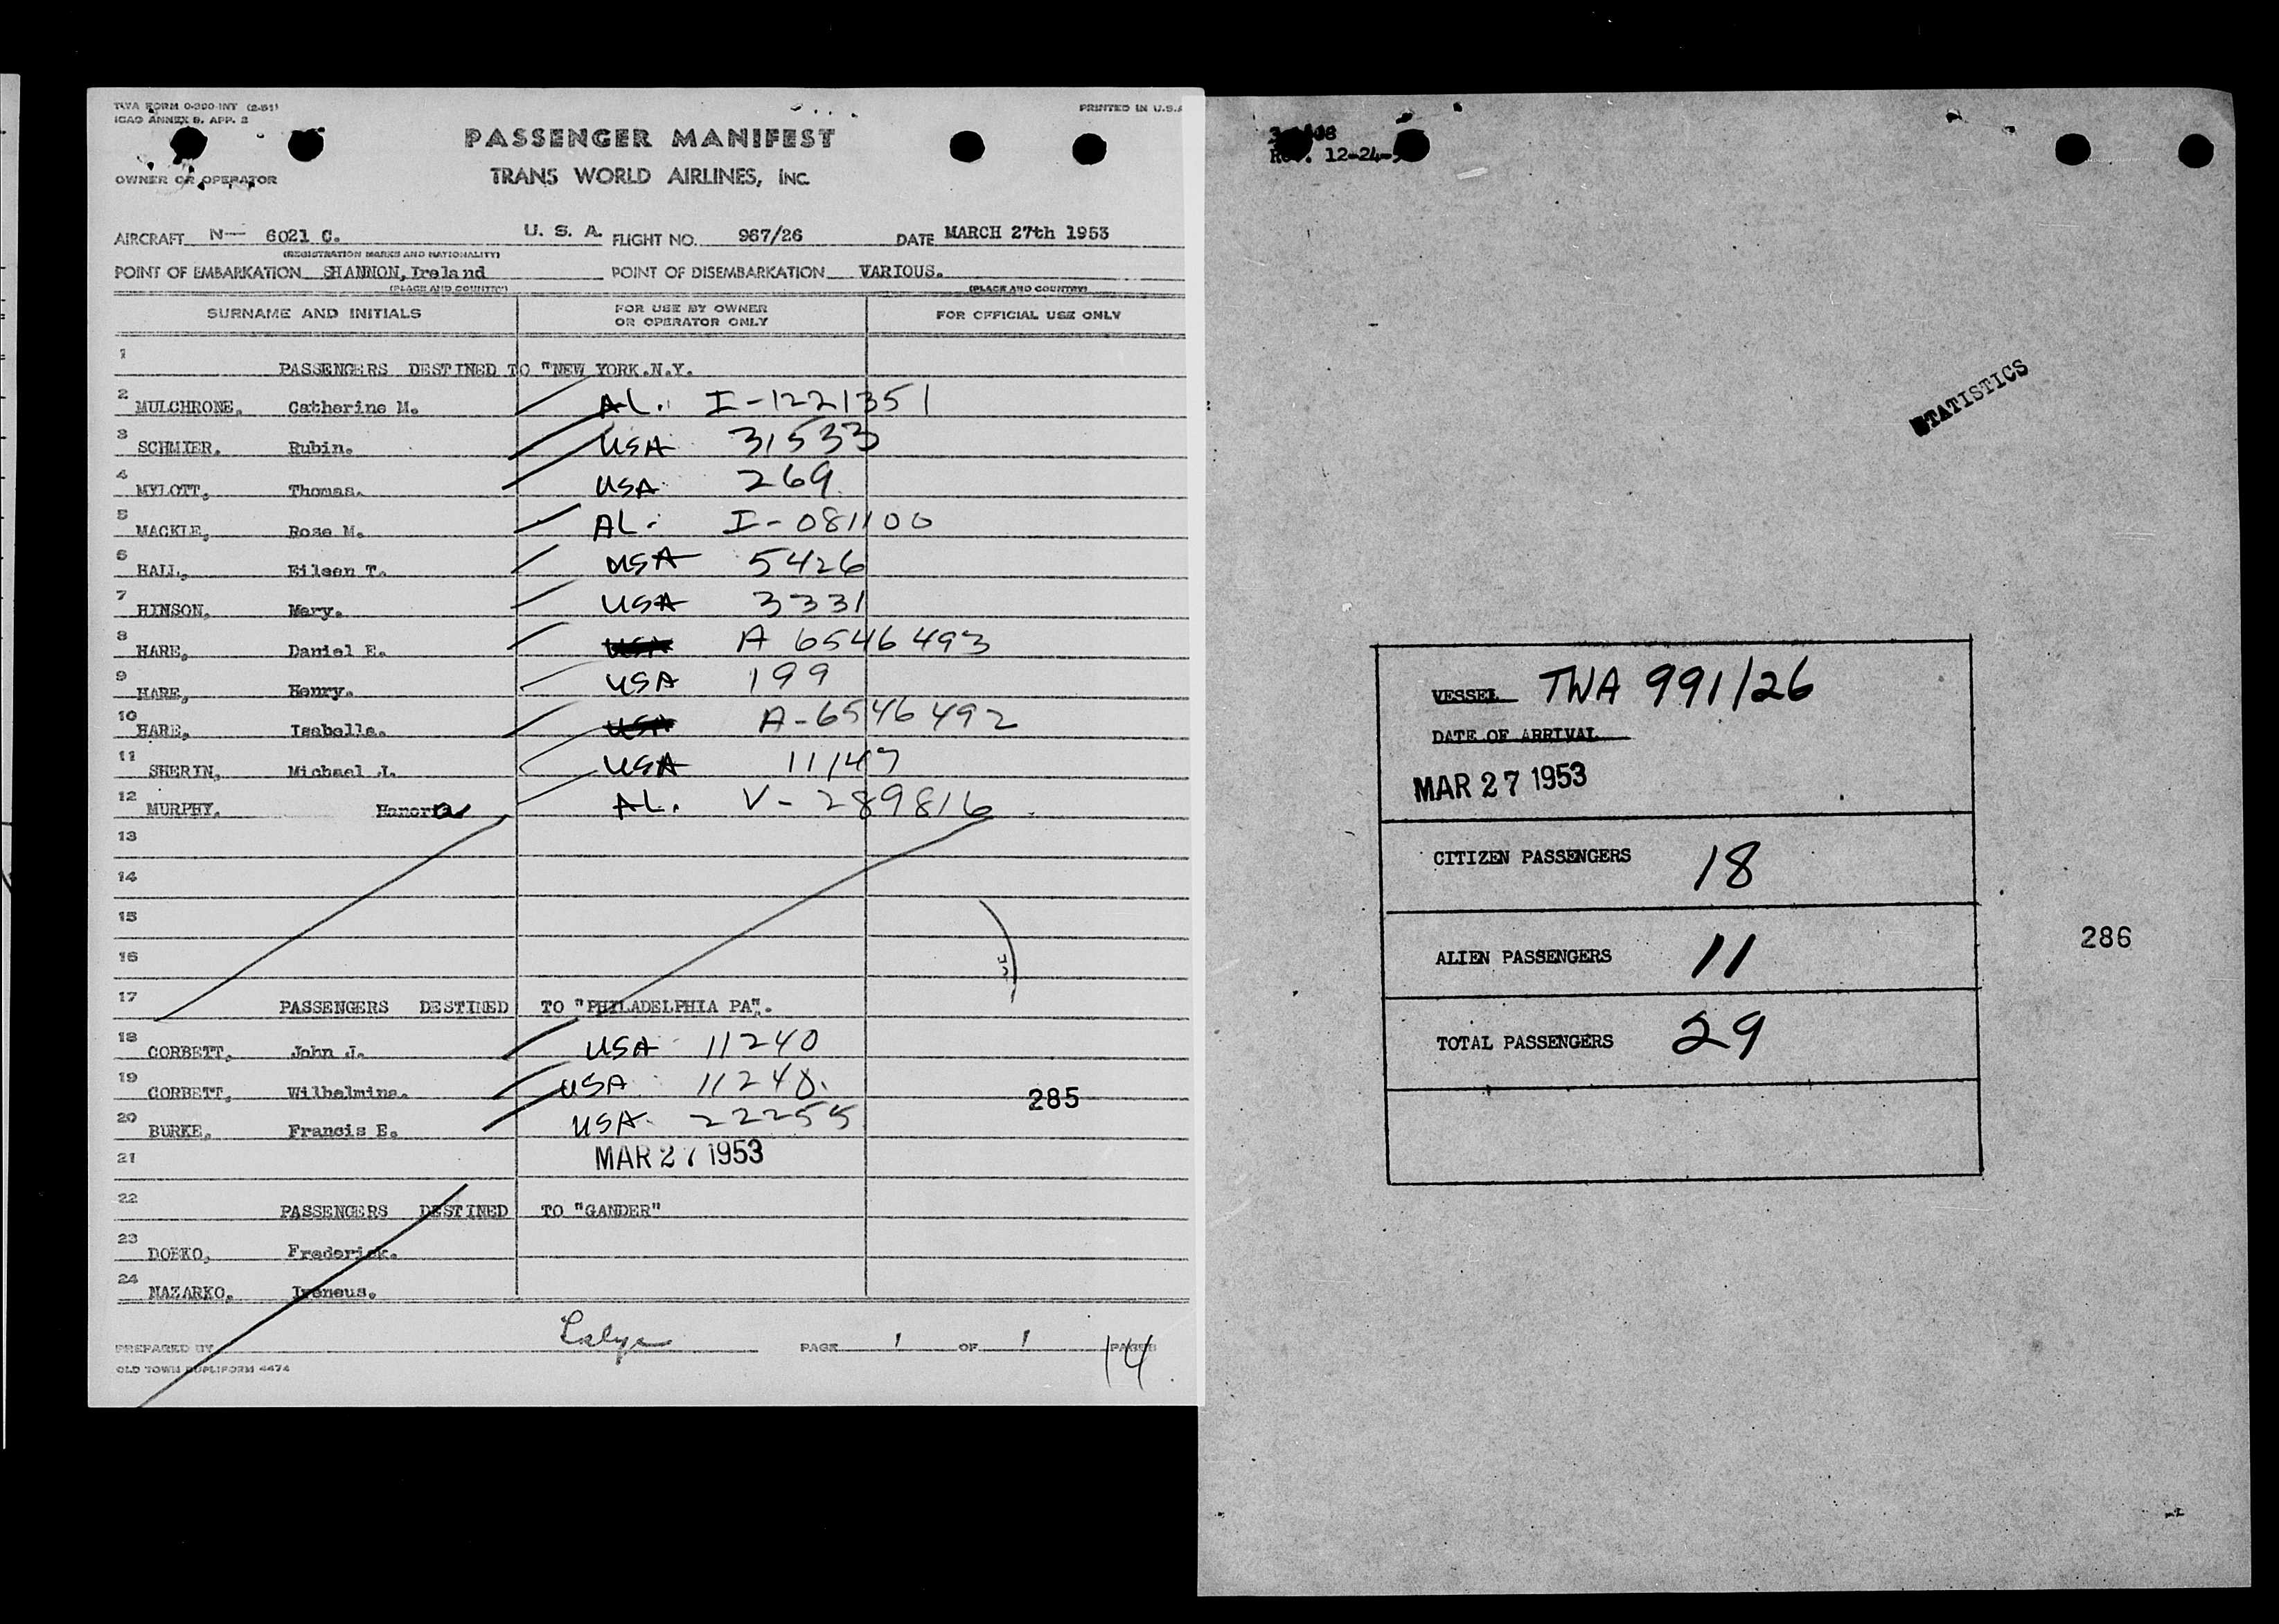 TWA FORM 0-300-INT (2-51)
ICAO ANNEX 9. APP. 2
PRINTED IN U.S.A
PASSENGER MANIFEST
OWNER OR OPERATOR
TRANS WORLD AIRLINES, INC.
AIRCRAFT N— 6021 C. U. S. A. FLIGHT NO. 967/26 DATE MARCH 27th 1953
(REGISTRATION MARKS AND NATIONALITY)
POINT OF EMBARKATION SHANNON, Ireland POINT OF DISEMBARKATION VARIOUS.
(PLACE AND COUNTRY) (PLACE AND COUNTRY)
SURNAME AND INITIALS FOR USE BY OWNER OR OPERATOR ONLY FOR OFFICIAL USE ONLY
1 PASSENGERS DESTINED TO "NEW YORK.N.Y.
2 MULCHRONE, Catherine M. AL. I-1221351
3 SCHMIER. Rubin. USA 31533
4 MYLOTT, Thomas. USA 269
5 MACKLE, Rose M. AL. I-081100
6 HALL, Eileen T. USA 5426
7 HINSON, Mary. USA 3331
8 HARE, Daniel E. USA A 6546493
9 HARE, Henry. USA 199
10 HARE, Isabella. USA A-6546492
11 SHERIN, Michael J. USA 11147
12 MURPHY. Hanora AL. V-289816
13
14
15
16
17 PASSENGERS DESTINED TO "PHILADELPHIA PA".
18 CORBETT, John J. USA 11240
19 CORBETT, Wilhelmina. USA 11240.
285
20 BURKE, Francis E. USA 22255
21 MAR 27 1953
22 PASSENGERS DESTINED TO "GANDER"
23 DOBKO, Frederick.
24 NAZARKO. Ireneus.
PREPARED BY PAGE 1 OF 1 PAGES
14
OLD TOWN DUPLIFORM 4474
Rev. 12-24-
STATISTICS
VESSEL TWA 991/26
DATE OF ARRIVAL
MAR 27 1953
CITIZEN PASSENGERS 18
286
ALIEN PASSENGERS 11
TOTAL PASSENGERS 29